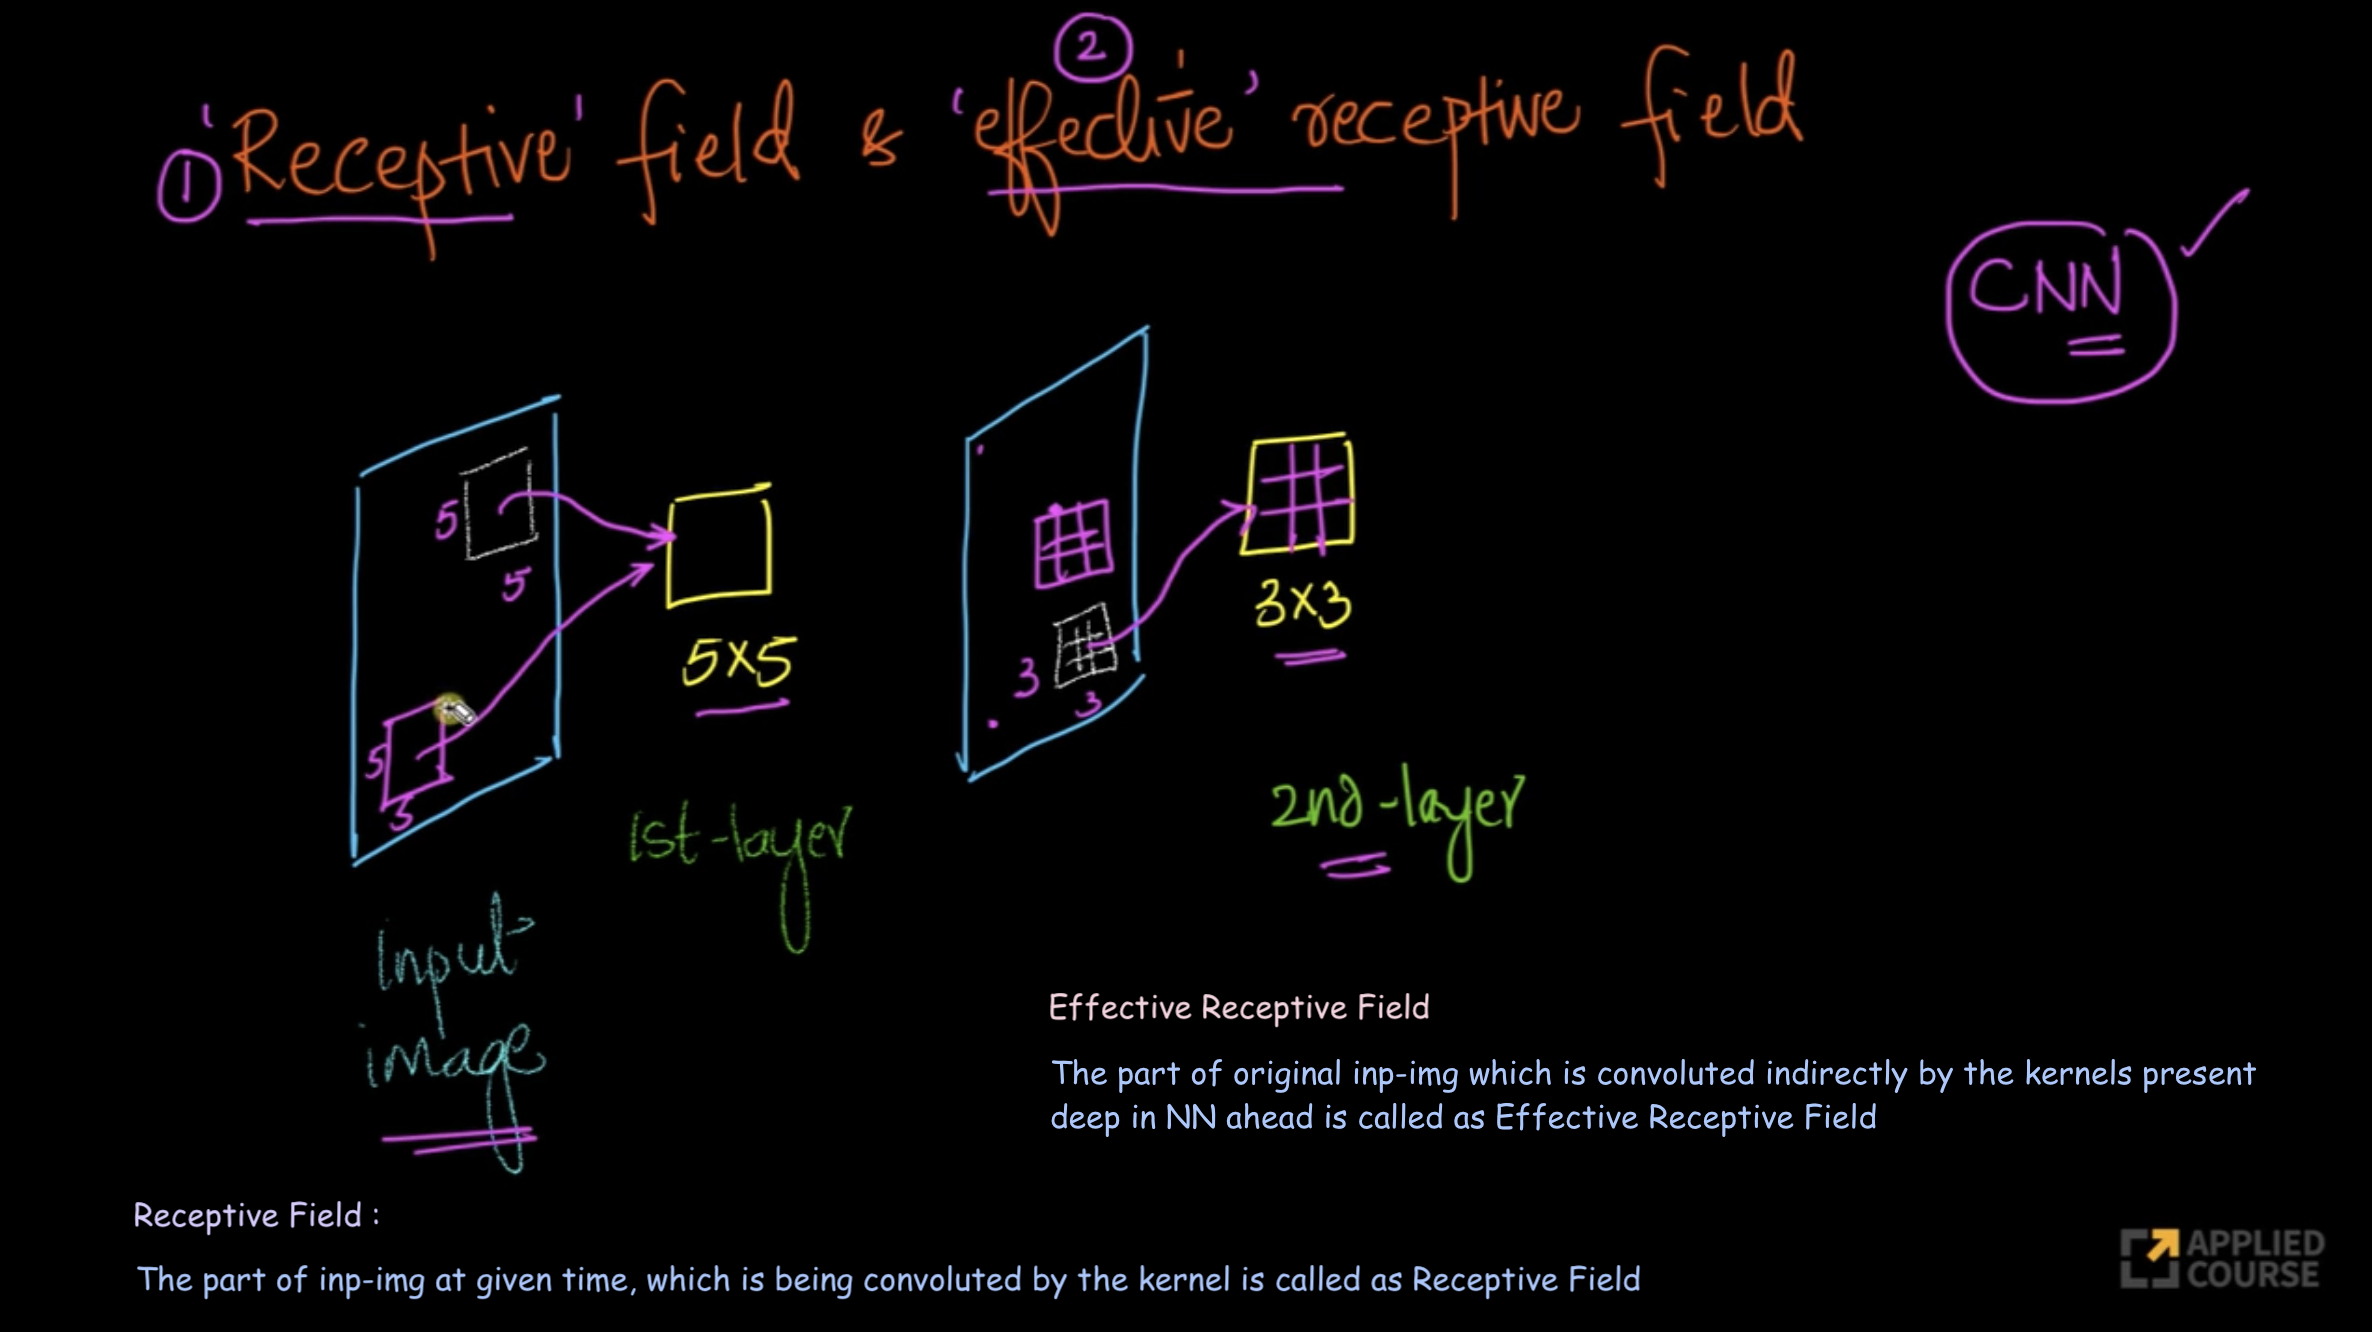 2
① 'Receptive' field & 'effective' receptive field
CNN
5
5
5×5
5
5
1st-layer
3×3
3
3
2nd-layer
Input
image
Effective Receptive Field
The part of original inp-img which is convoluted indirectly by the kernels present
deep in NN ahead is called as Effective Receptive Field
Receptive Field :
The part of inp-img at given time, which is being convoluted by the kernel is called as Receptive Field
APPLIED
COURSE